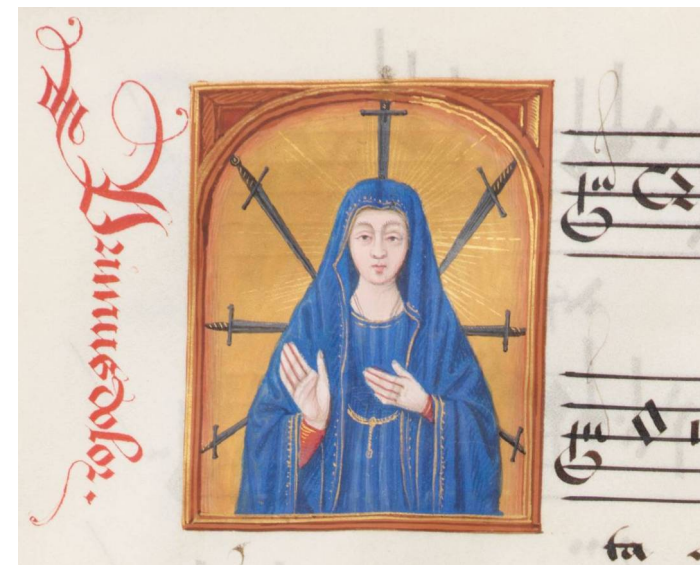 Primus dolor.
ta